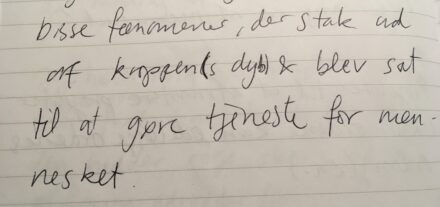 bisse fænomener, der stak ud
af kroppen(s dyb) & blev sat
til at gøre tjeneste for men-
nesket.